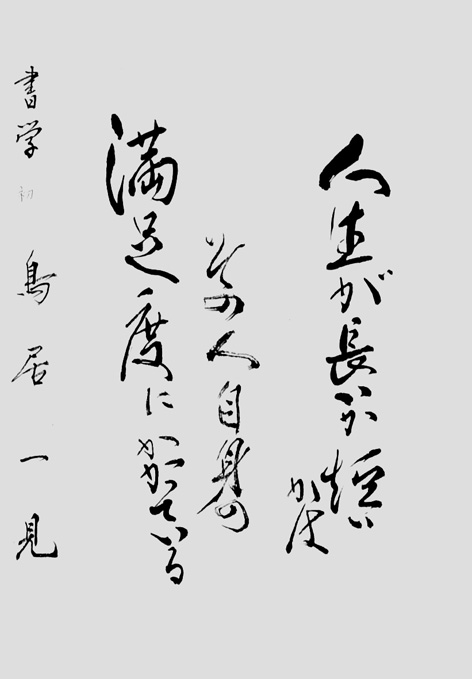 人生が長いか短い
かは
その人自身の
満足度にかかっている
書学 初 鳥居一見